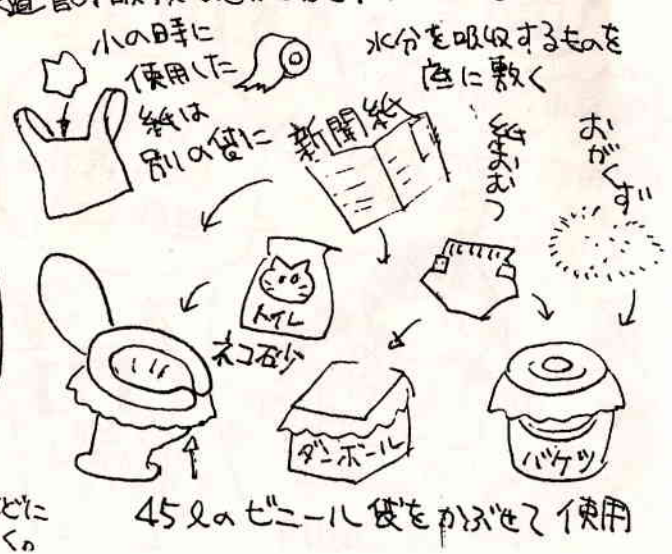 小の時に
使用した
紙は
別の袋に
水分を吸収するものを
底に敷く
新聞紙
紙おむつ
おがくず
トイレ
ネコ砂
ダンボール
バケツ
どに
く。
45ℓのビニール袋をかぶせて使用